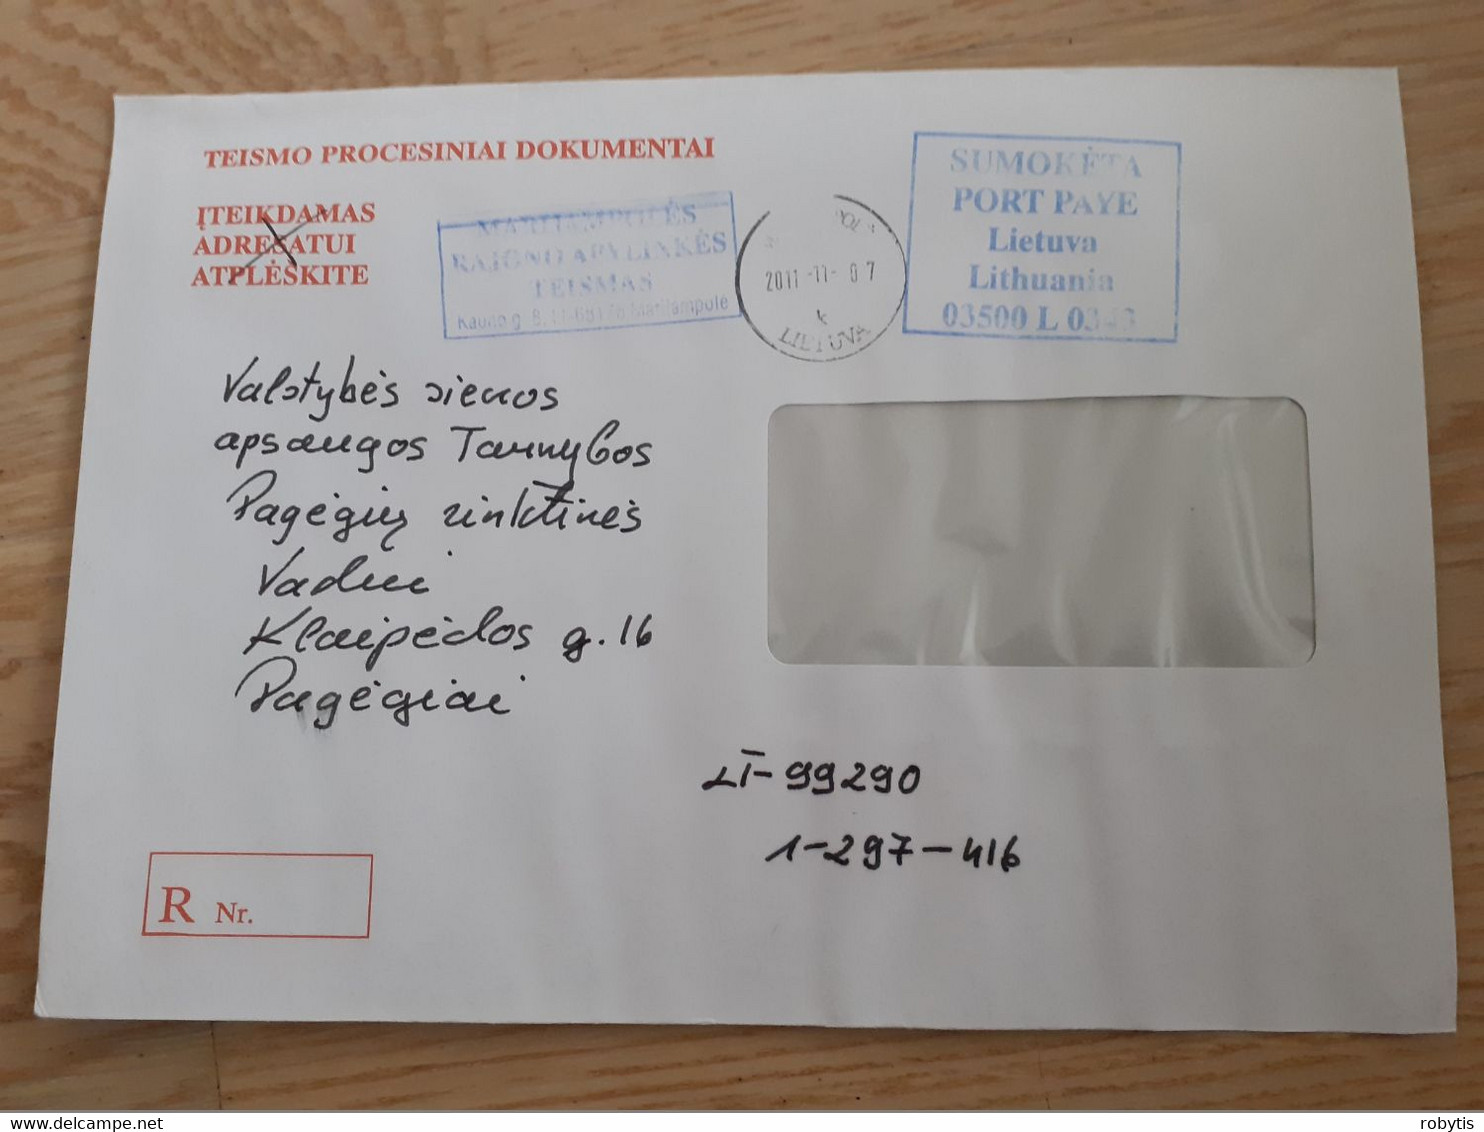 TEISMO PROCESINIAI DOKUMENTAI
ĮTEIKDAMAS
ADRESATUI
ATPLĖŠKITE
MARIJAMPOLĖS
RAJONO APYLINKĖS
TEISMAS
Kauno g. 8, Marijampolė
2011-11-07
k
LIETUVA
SUMOKĖTA
PORT PAYE
Lietuva
Lithuania
03500 L
Valstybės sienos
apsaugos Tarnybos
Pagėgių rinktinės
Vadui
Klaipėdos g. 16
Pagėgiai
LT-99290
1-297-416
R Nr.
robytis